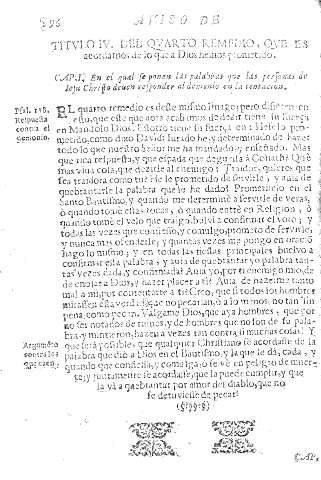 596 AVISO DE
TITVLO IV. DEL QVARTO REMEDIO, QVE ES
acordarnos de lo que a Dios hemos prometido.
CAP. I. En el qual se ponen las palabras que las personas de
Jesu Christo deuen responder al demonio en la tentacion.
Psal. 118.
Respuesta
contra el
demonio.
EL quarto remedio es deste mismo linage; pero difieren en
esto, que este que aora acabamos de dezir tiene su fuerça
en Mandolo Dios. Estotro tiene su fuerça en: Helelo pro-
metido, como dixo Dauid: Iurado he, y determinado de hazer
todo lo que nuestro Señor me ha mandado, y enseñado. Mas
que rica respuesta, y que espada que deguella à Goliath? Què
mas viua cosa, que dezirle al enemigo: Traidor, quieres que
sea traidora como tu? Hele prometido de seruirle, y aura de
quebrantarle la palabra que le he dado? Prometicio en el
Santo Bautismo, y quando me determinè a seruirle de veras,
ò quando tomè estas tocas, ò quando entrè en Religion, ò
quando tomè el velo que traigo, boluì a confirmar el voto; y
todas las vezes que confiesso, y comulgo, prometo de seruirle,
y nunca mas ofenderle; y quantas vezes me pongo en oraciō
hago lo mismo, y en todas las fiestas principales bueluo a
confirmar esta palabra, y aura de quebrantar yo palabra tan-
tas vezes dada, y confirmada? Aura yo, por ti enemigo mio, de
de enojar a Dios, y hazer placer a ti? Aura de hazerme tanto
mal a mi, por contentarte a ti? Creo, que si todos los hombres
mirassen esta verdad, que no pecarian; o a lo menos, no tan sin
pena, como pecan. Valgame Dios, que aya hombres, que por
no ser notados de ruines, y de hombres que no son de su pala-
bra, y mintieron, hazen a vezes tan contra si muchas cosas! Y
Argumēto
contra los
que pecan.
que serà possible, que qualquier Christiano se acordasse de la
palabra que diò a Dios en el Bautismo, y la que le dà, cada, y
quando que confiessa, y comulga, ò se vè en peligro de muer-
te; y juntamente se acordasse, que la puede cumplir, y que
la và a quebrantar por amor del diablo, que no
se detuuiesse de pecar?
CA-